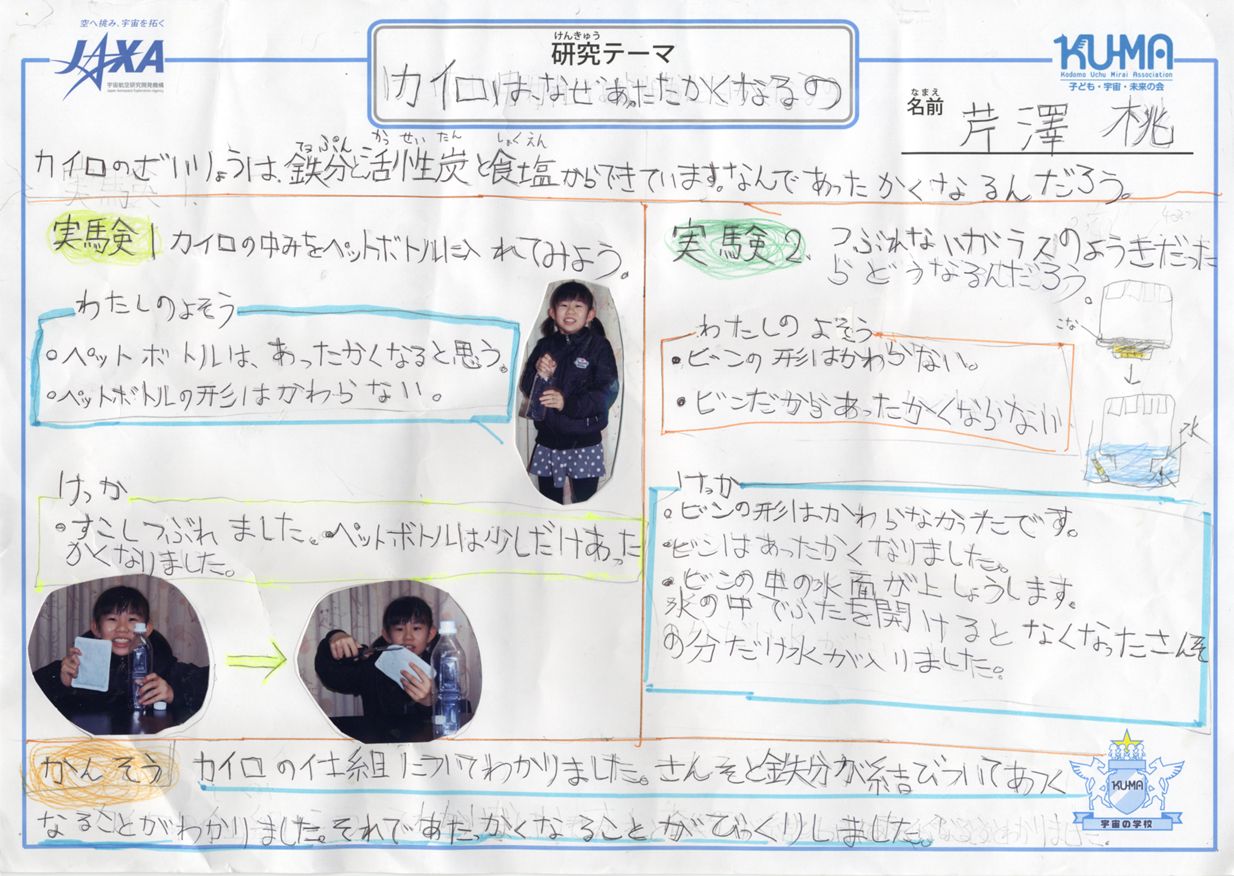 空へ挑み、宇宙を拓く
JAXA
宇宙航空研究開発機構
Japan Aerospace Exploration Agency
けんきゅう
研究テーマ
カイロはなぜあったたかくなるの
KUMA
Kodomo Uchu Mirai Association
子ども・宇宙・未来の会
なまえ
名前
芹澤 桃
てつぶん かっせいたん しょくえん
カイロのざいりょうは、鉄分と活性炭と食塩からできています。なんであったかくなるんだろう。
実験1 カイロの中みをペットボトルに入れてみよう。
わたしのよそう
○ペットボトルは、あったかくなると思う。
○ペットボトルの形はかわらない。
けっか
・すこしつぶれました。・ペットボトルは少しだけあった
かくなりました。
実験2. つぶれないガラスのようきだった
らどうなるんだろう。
わたしのよそう
・ビンの形はかわらない。
・ビンだからあったかくならない
こな
水
けっか
・ビンの形はかわらなかったです。
・ビンはあったかくなりました。
・ビンの中の水面が上しょうします。
水の中でふたを開けるとなくなったさんそ
の分だけ水が入りました。
かんそう カイロの仕組についてわかりました。さんそと鉄分が結びついてあつく
なることがわかりました。それであたっかくなることがびっくりしました。
KUMA
宇宙の学校